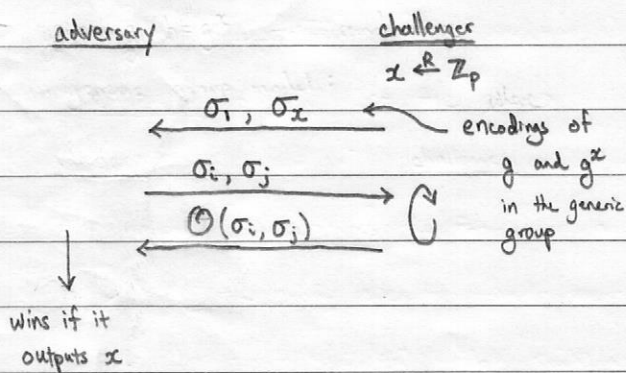 adversary
challenger
x ←ᴿ ℤₚ
σ₁, σₓ
encodings of
g and gˣ
in the generic
group
σᵢ, σⱼ
𝒪(σᵢ, σⱼ)
wins if it
outputs x